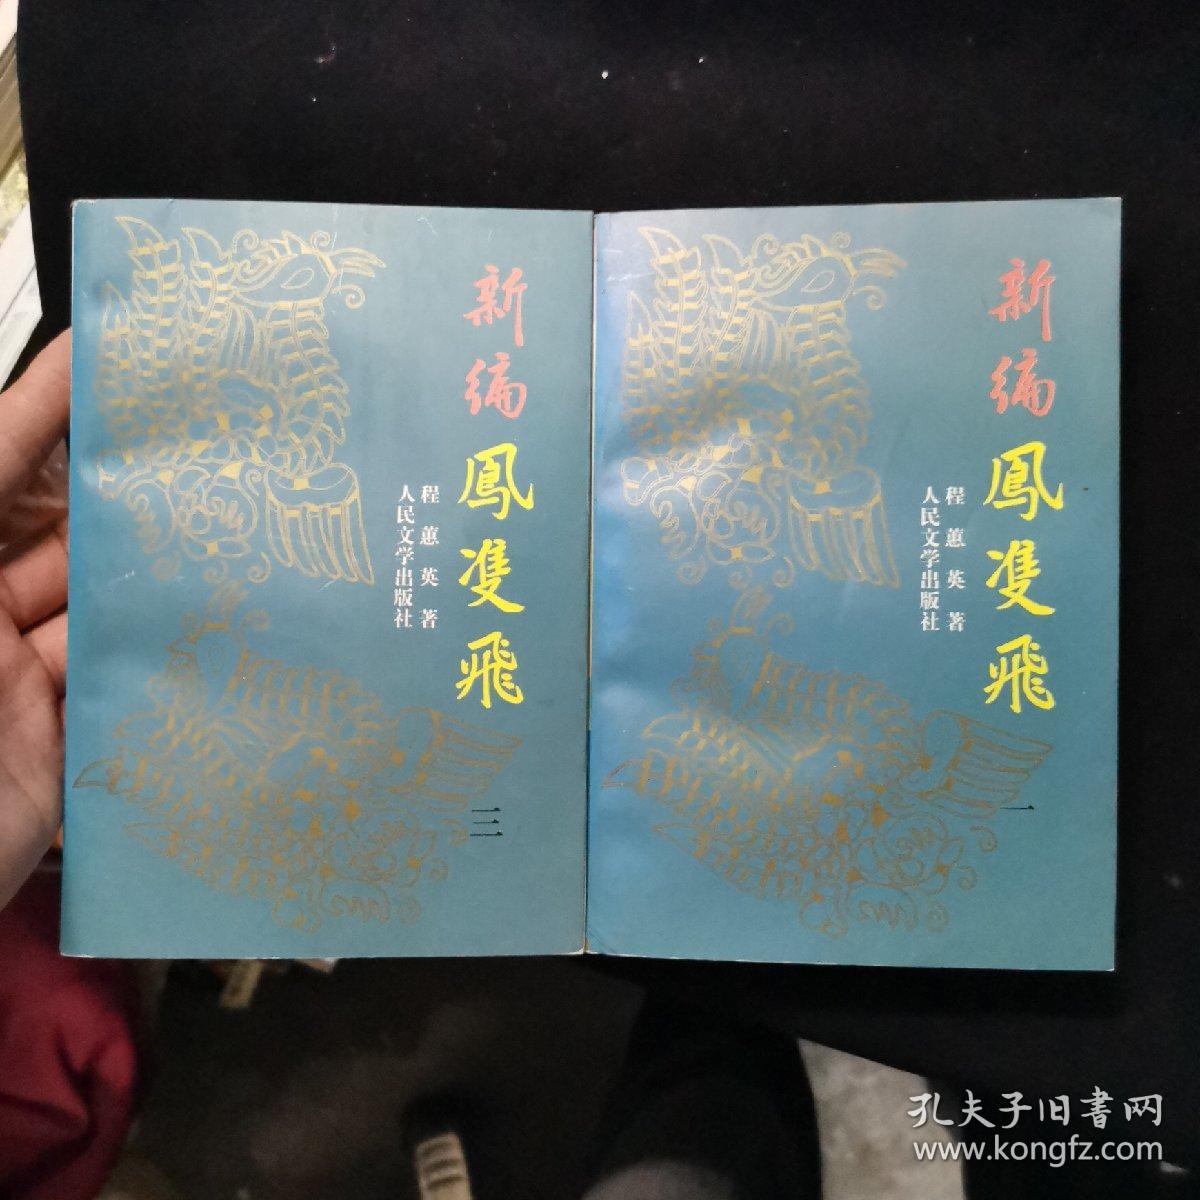 新编鳳雙飛
程蕙英著
人民文学出版社
三
新编鳳雙飛
程蕙英著
人民文学出版社
一
孔夫子旧書网
www.kongfz.com